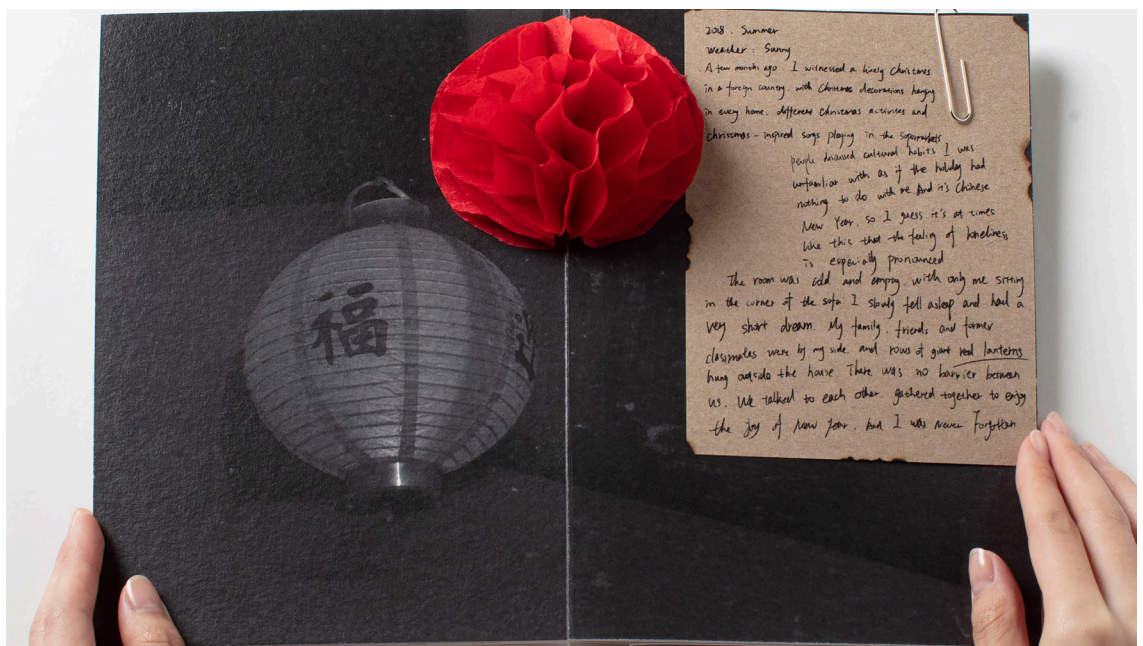 福
2018. Summer
Weather: Sunny
A few months ago. I witnessed a lively Christmas
in a foreign country. with Christmas decorations hanging
in every home. different Christmas activities and
Christmas-inspired songs playing in the supermarkets
people discussed cultural habits I was
unfamiliar with as if the holiday had
nothing to do with me. And it's Chinese
New Year, so I guess it's at times
like this that the feeling of loneliness
is especially pronounced
The room was cold and empty. with only me sitting
in the corner of the sofa I slowly fell asleep and had a
very short dream. My family. friends and former
classmates were by my side. and rows of giant red lanterns
hung outside the house. There was no barrier between
us. We talked to each other gathered together to enjoy
the joy of New Year. And I was never Forgotten